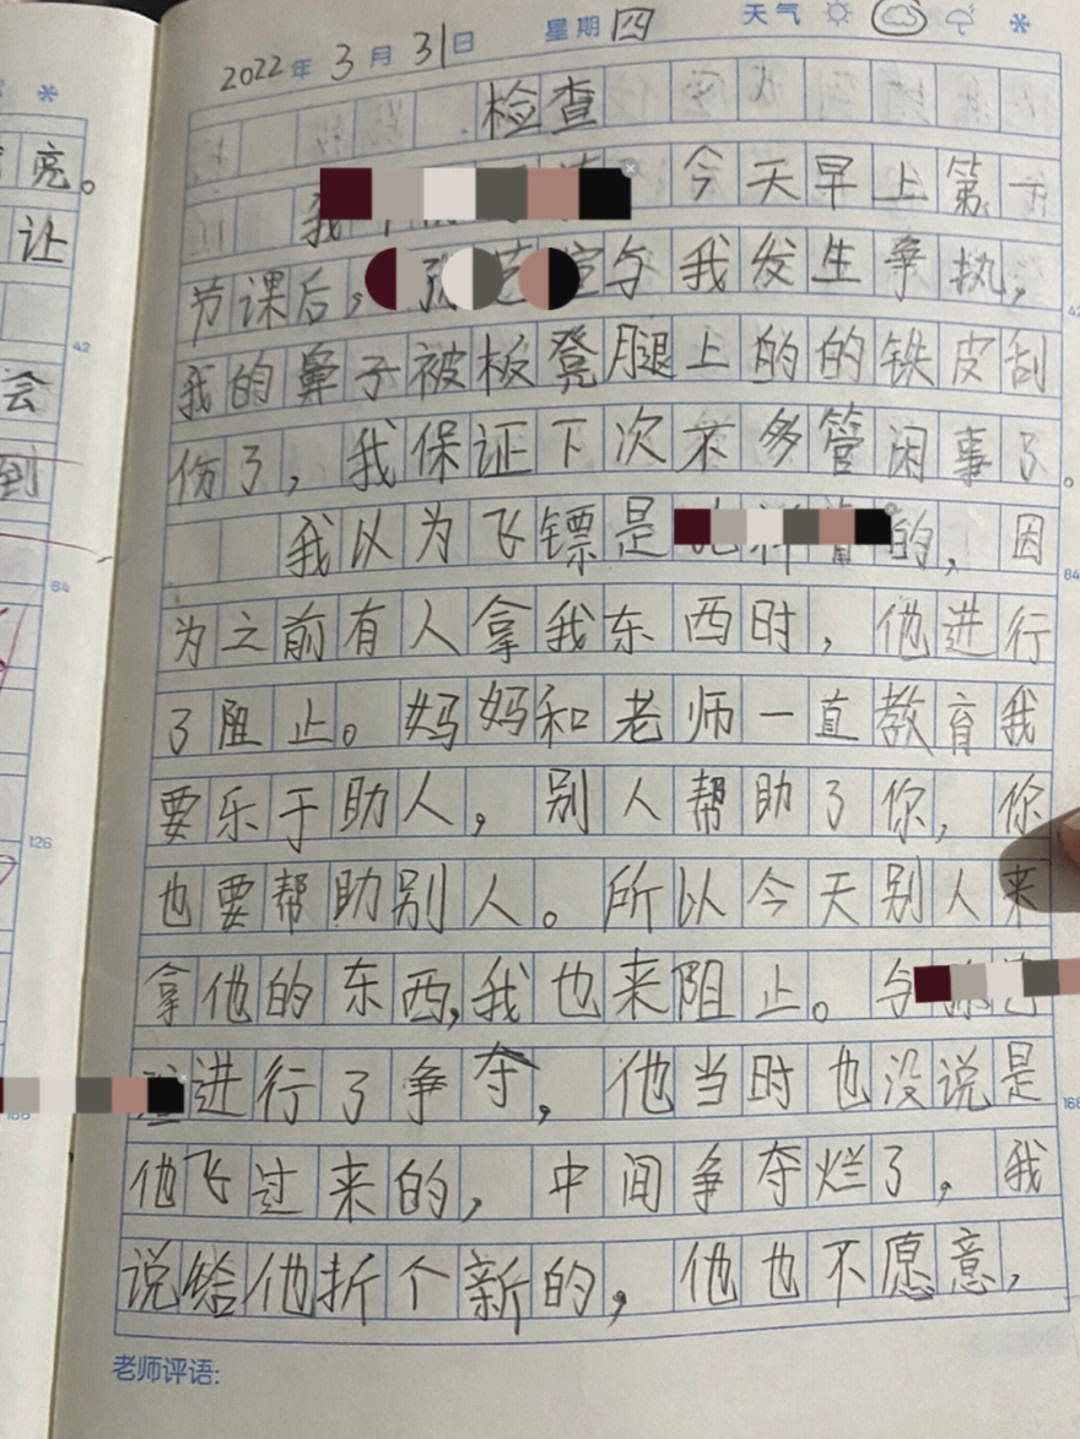 亮。
让
42
会
到
84
126
168
2022年3月31日 星期四 天气
检查
我 今天早上第一
节课后, 与我发生争执,
42
我的鼻子被板凳腿上的的铁皮刮
伤了,我保证下次不多管闲事了。
我以为飞镖是 的,因
84
为之前有人拿我东西时,他进行
了阻止。妈妈和老师一直教育我
要乐于助人,别人帮助了你,你
也要帮助别人。所以今天别人来
拿他的东西,我也来阻止。与
进行了争夺,他当时也没说是
168
他飞过来的,中间争夺烂了,我
说给他折个新的,他也不愿意,
老师评语: